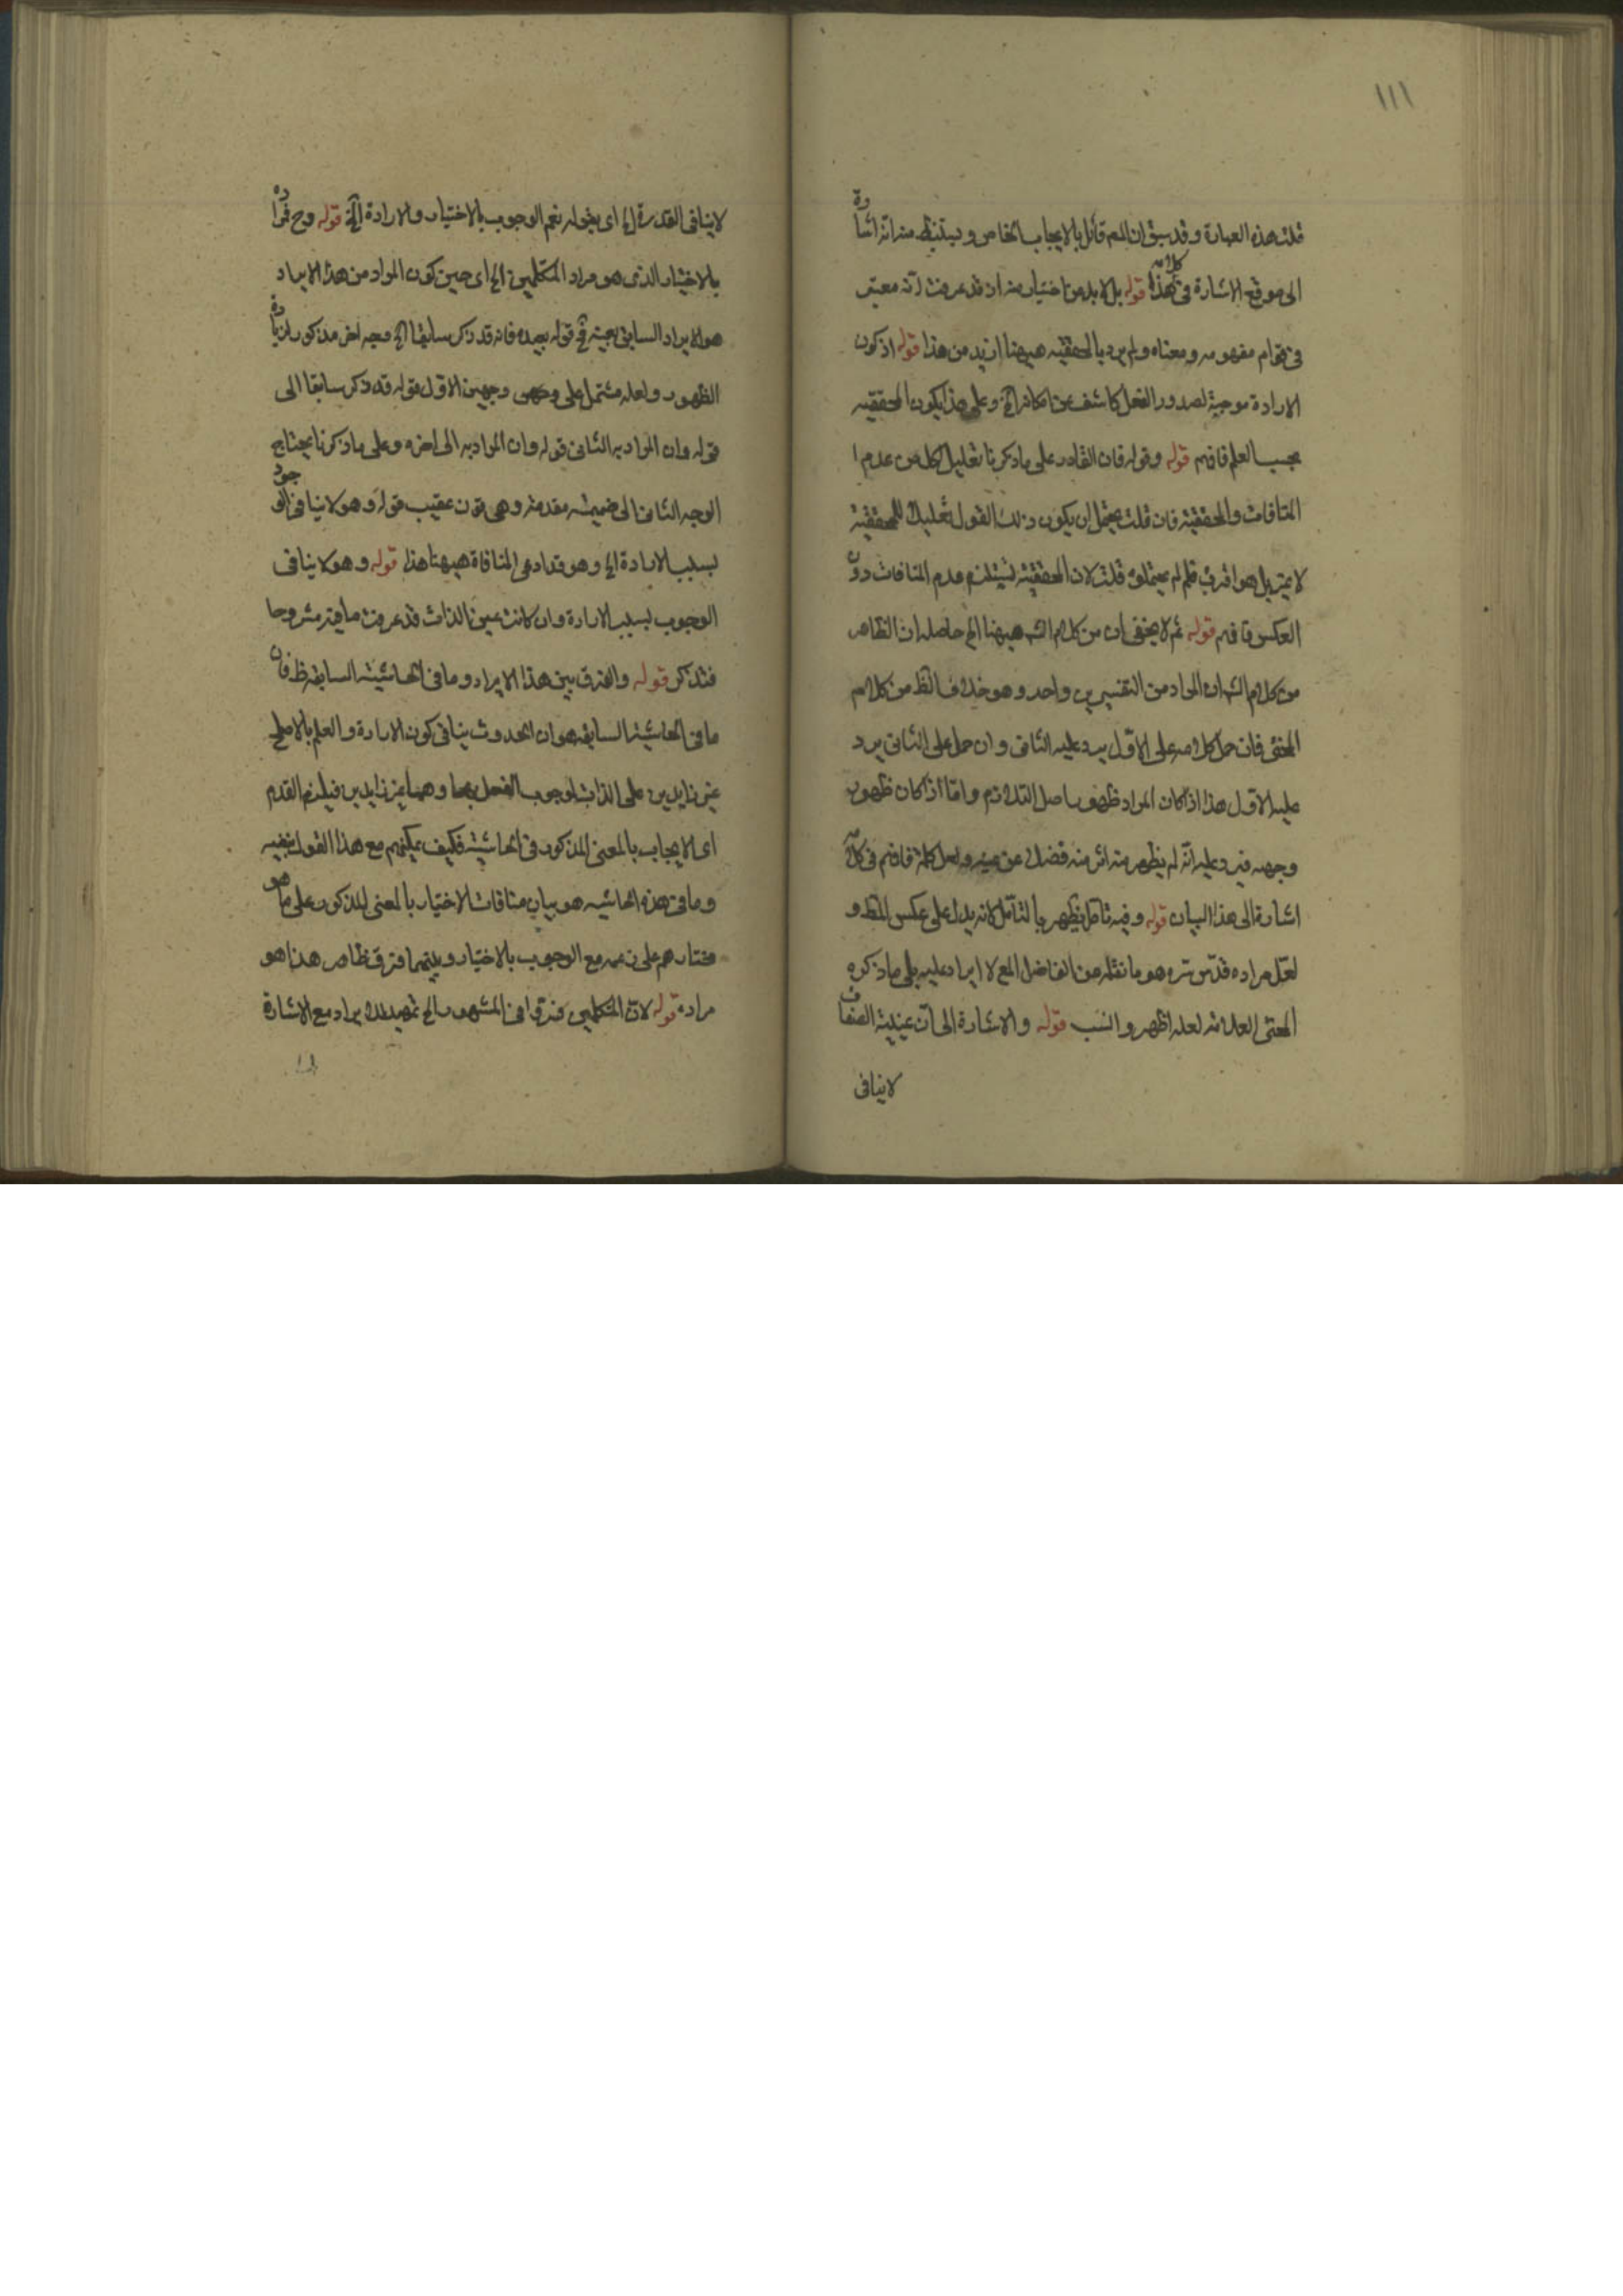 ١١١
قلت هذه العبارة وقد سبق ان المص قائل بالايجاب الخاص ويستنبط منه انه اشارة
الى موقع الاشارة في كلامه هذا قوله بل لا بد من اختيار منه ان قد عرفت انه معتبر
في قوام مفهومه ومعناه ولم يرد بالمحققيه هيهنا ازيد من هذا قوله اذ كون
الارادة موجبة لصدور الفعل كاشف عن امكانه الخ وعلى هذا يكون المحققيه
بحسب العلم فافهم قوله وقوله فان القادر على ما ذكرنا تعليل لكل من عدم ا
المنافات والمحققية فان قلت يحتمل ان يكون ذلك القول تعليلا للمحققية
لا غير بل هو اقرب فلم لم يحتمله قلت لان المحققية تستلزم عدم المنافات دون
العكس فافهم قوله ثم لا يخفى ان من كلام الشـ هيهنا الخ حاصله ان الظاهر
من كلام الشـ ان المراد من التفسيرين واحد وهو خلاف الظ من كلام
المحشى فان حمل كلامه على الاول يرد عليه الثانى وان حمل على الثانى يرد
عليه الاول هذا اذا كان المراد ظهور اصل التلازم واما اذا كان ظهور
وجهه فيرد عليه انه لم يظهر منه اثر منه فضلا عن عينه ولعل كلمة فافهم في كلامه
اشارة الى هذا البيان قوله وفيه تامل يظهر بالتامل لانه يدل على عكس المط و
لعل مراده قدس سره هو ما نقله من الفاضل المع لا ايراد عليه بلى ما ذكره
المحشى العلامه لعله اظهر وانسب قوله والاشارة الى ان عينية الصفات
لا ينافى
لا ينافى القدرة الخ اى بقوله نعم الوجوب بالاختيار والارادة الخ قوله وح فمرا ده
بالاختيار الذى هو مراد المتكلمين الخ اى حين كون المراد من هذا الايراد
هو الايراد السابق بعينه في قوله بعيده فانه قد ذكر سابقا الخ وجه اخر مذكور لزيادة
الظهور ولعله مشتمل على وجهين الاول قوله قد ذكر سابقا الى
قوله وان المراد به الثانى قوله وان المراد به الى اخره وعلى ما ذكرنا يحتاج
الوجه الثانى الى ضميمه مقدمة وهى قوله عقيب قوله وهو لا ينافى الوجود
بسبب الارادة الخ وهو قد ادعى المنافاة هيهنا هذا قوله وهو لا ينافى
الوجوب بسبب الارادة وان كانت عين الذات قد عرفت ما فيه مشروحا
فتذكر قوله والفرق بين هذا الايراد وما في الحاشية السابقه ظ فان
ما في الحاشية السابقه هو ان الحدوث ينافى كون الارادة والعلم بالاصلح
غير زايدين على الذات لوجوب الفعل بهما وهما غير زايدين فيلزم القدم
اى الايجاب بالمعنى المذكور فى الحاشية فكيف يمكنهم مع هذا القول بنفيه
وما في هذه الحاشيه هو بيان منافات الاختيار بالمعنى المذكور على ما هو
مختارهم على زعمه مع الوجوب بالاختيار وبينهما فرق ظاهر هذا هو
مراده قوله لان المتكلمين فرقوا في المشهور الخ تمهيد للايراد مع الاشارة